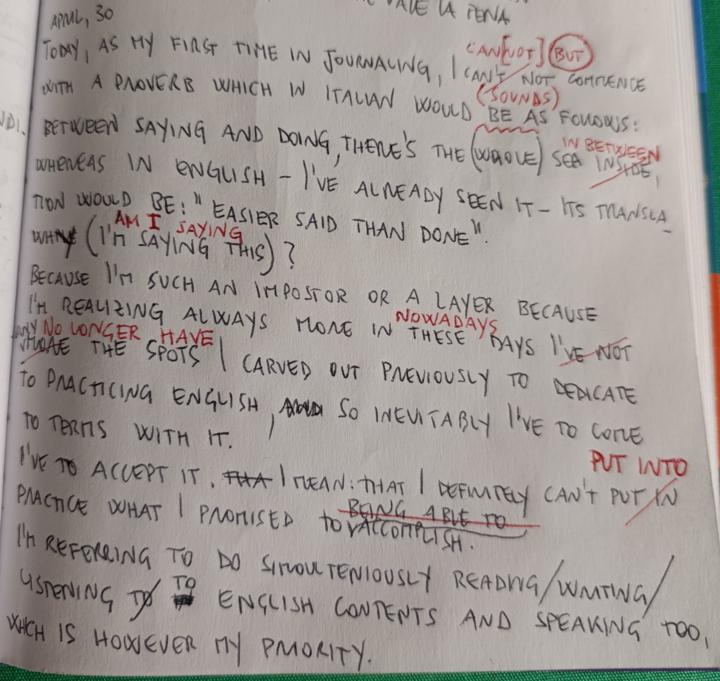 VALE LA PENA
APRIL, 30
CAN[NOT] BUT
TODAY, AS MY FIRST TIME IN JOURNALING, I CAN'T NOT COMMENCE
(SOUNDS)
WITH A PROVERB WHICH IN ITALIAN WOULD BE AS FOLLOWS:
BETWEEN SAYING AND DOING, THERE'S THE (WHOLE) SEA INSIDE,
IN BETWEEN
WHEREAS IN ENGLISH - I'VE ALREADY SEEN IT - ITS TRANSLA
TION WOULD BE: "EASIER SAID THAN DONE".
AM I SAYING
WHY (I'M SAYING THIS)?
BECAUSE I'M SUCH AN IMPOSTOR OR A LAYER BECAUSE
NOWADAYS
I'M REALIZING ALWAYS MORE IN THESE DAYS I'VE NOT
ANY NO LONGER HAVE
MORE THE SPOTS I CARVED OUT PREVIOUSLY TO DEDICATE
TO PRACTICING ENGLISH, SO INEVITABLY I'VE TO COME
TO TERMS WITH IT.
PUT INTO
I'VE TO ACCEPT IT. THA I MEAN: THAT I DEFINITELY CAN'T PUT IN
BEING ABLE TO
PRACTICE WHAT I PROMISED TO ACCOMPLISH.
I'M REFERRING TO DO SIMOULTENIOUSLY READING/WRITING/
LISTENING TO TO ENGLISH CONTENTS AND SPEAKING TOO,
WHCH IS HOWEVER MY PRIORITY.